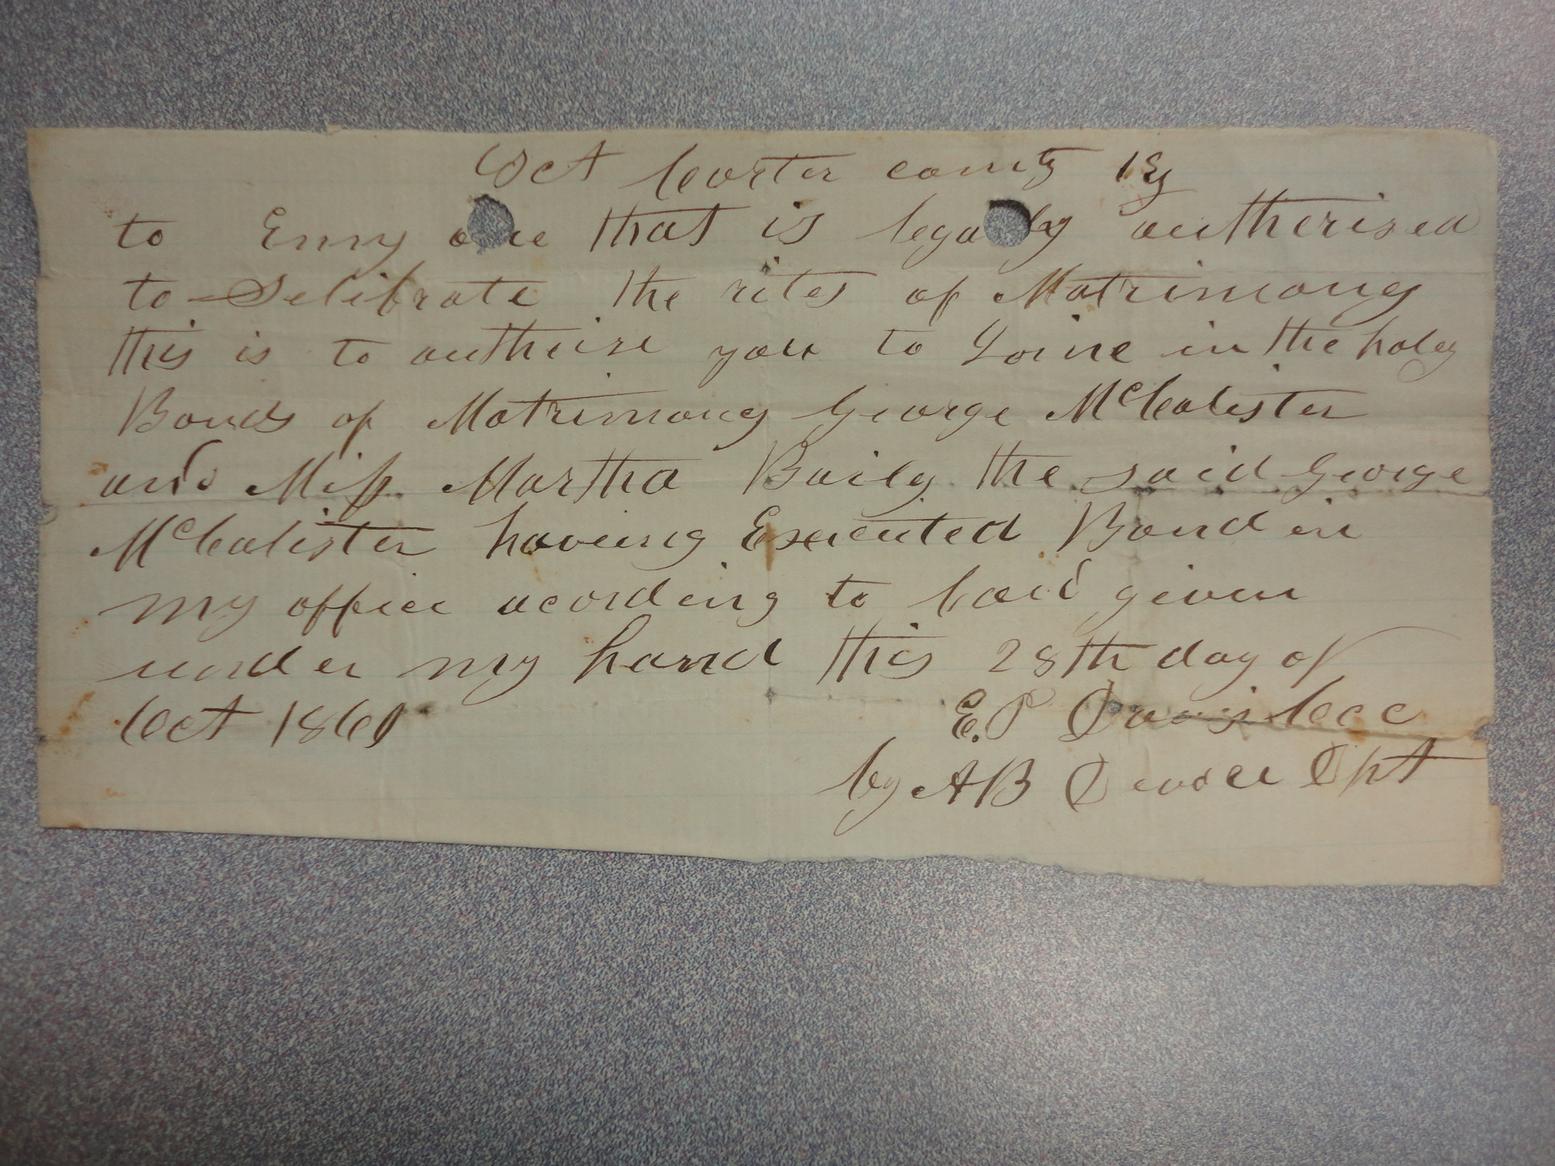 Oct Carter county Ky
to Enny one that is legaly autherised
to Selibrate the rites of Matrimony
this is to autherise you to Joine in the holy
Bonds of Matrimony George McCalister
and Miss Martha Baily the said George
McCalister having Executed Bond in
my office acording to Law given
under my hand this 28th day of
Oct 1861
E.P Davis Ccc
by AB Dpt